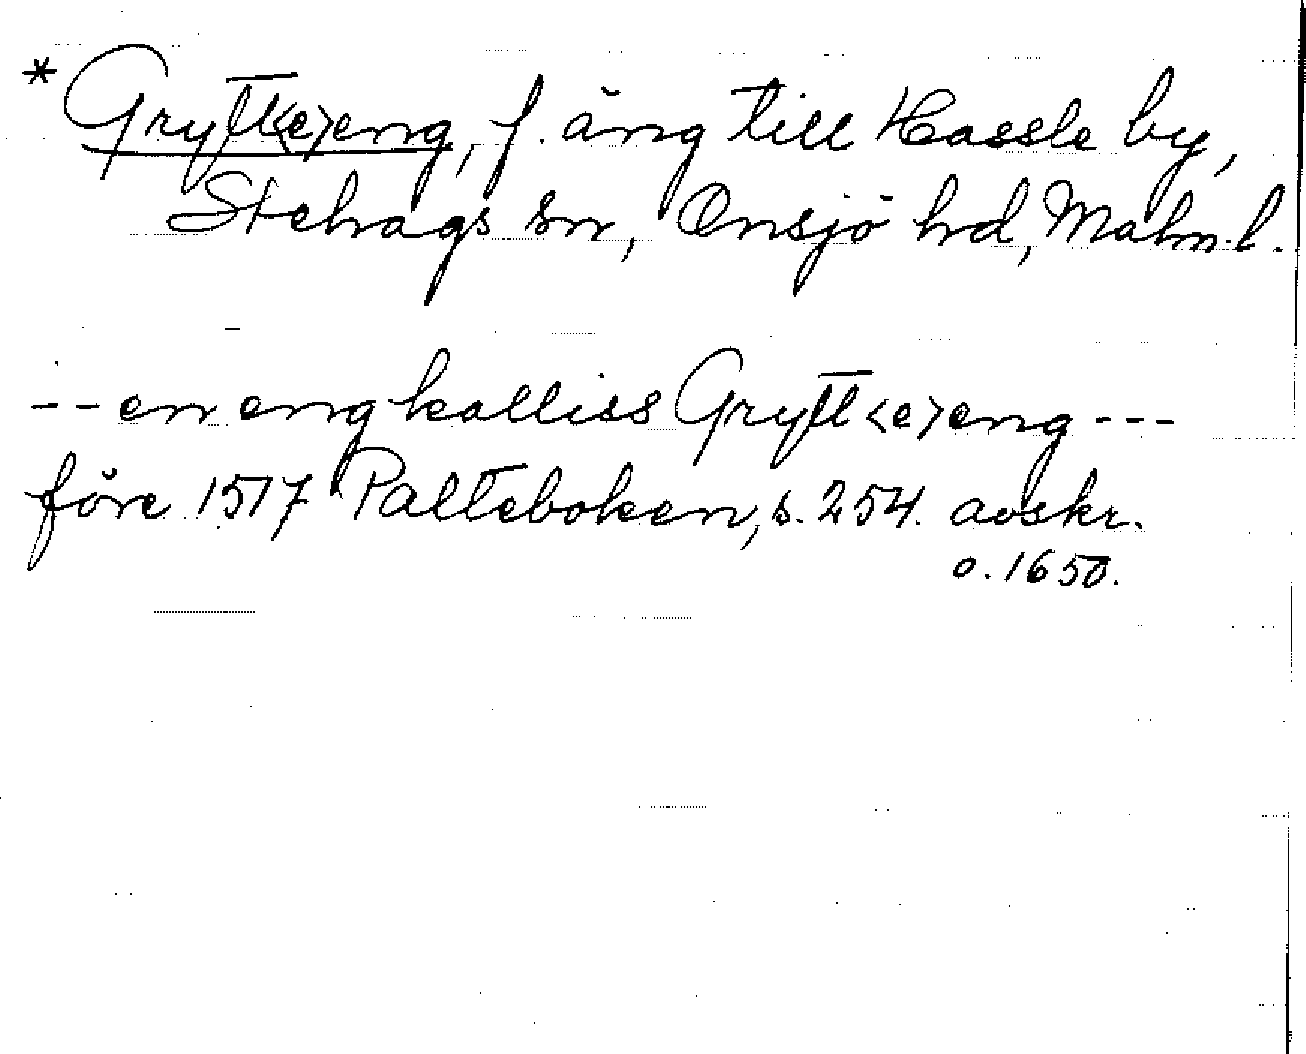 *Grytt<e>eng, f. äng till Hassle by,
Stehags sn, Onsjö hd, Malm. l.
-- en eng kalliss Grytt<e>eng ---
före 1517 Palteboken, s. 254. avskr.
o. 1650.